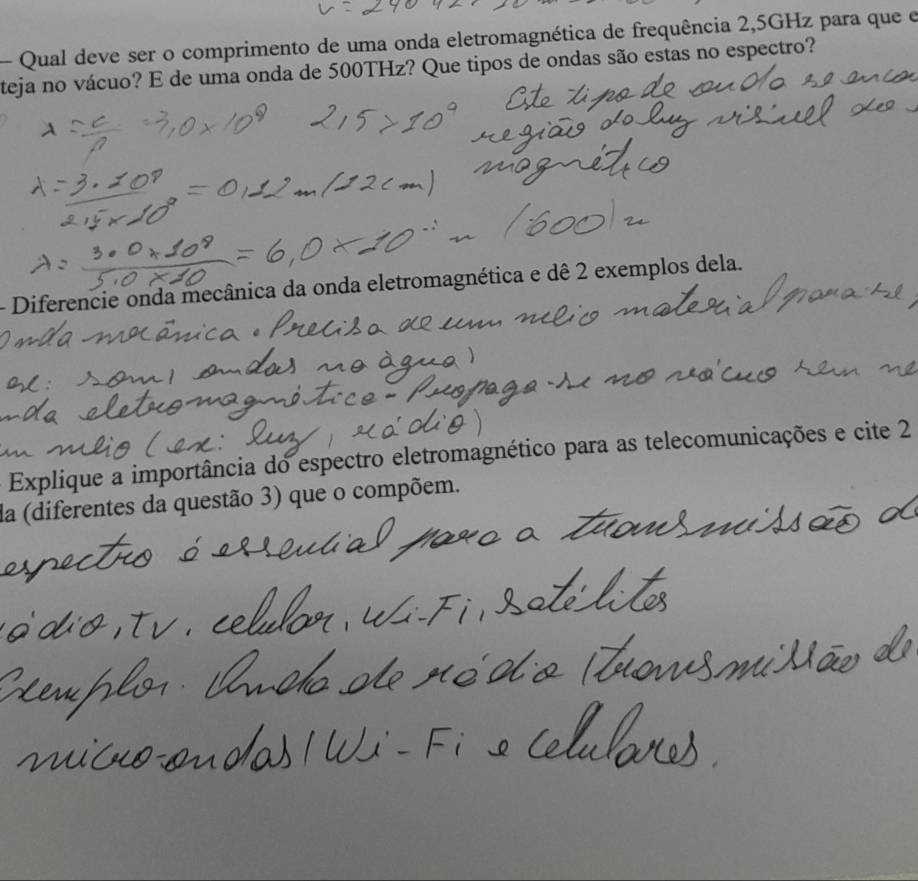 – Qual deve ser o comprimento de uma onda eletromagnética de frequência 2,5GHz para que e
teja no vácuo? E de uma onda de 500THz? Que tipos de ondas são estas no espectro?
Este tipo de onda se enco
λ = c/f 3,0 × 10⁸ 2,5 > 10⁹ região da luz visivel
magnético
λ = 3 · 10⁸ / 2,5 × 10⁹ = 0,12 m (12 cm)
λ = 3.0 × 10⁸ / 5,0 × 10 = 6,0 × 10 (600)
- Diferencie onda mecânica da onda eletromagnética e dê 2 exemplos dela.
Onda mecânica. Precisa de um meio material para se
ex: som, ondas na água)
nda eletromagnética - Propaga-se no vácuo sem ne
um meio (ex: luz, rádio)
Explique a importância do espectro eletromagnético para as telecomunicações e cite 2
da (diferentes da questão 3) que o compõem.
espectro é essencial para a transmissão d
rádio, tv, celular, Wi-Fi, satélites
Exemplos. Onda de rádio (transmissão de
micro-ondas (Wi-Fi e celulares.